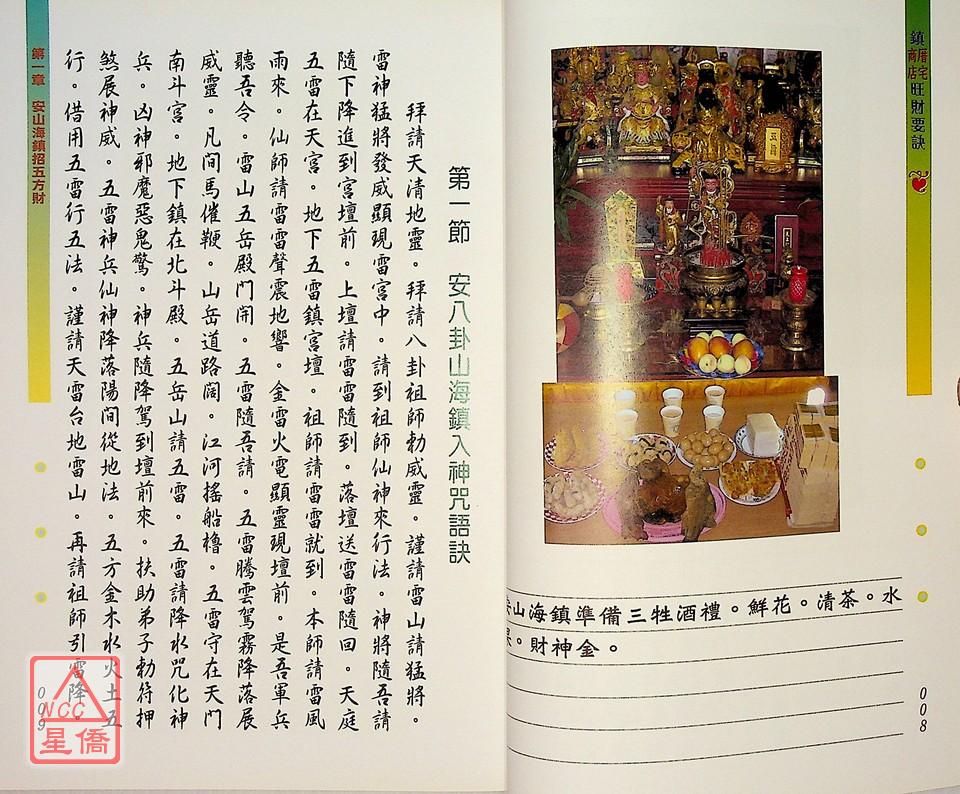 鎮厝宅商店旺財要訣
安山海鎮準備三牲酒禮。鮮花。清茶。水
果。財神金。
008
第一章　安山海鎮招五方財
第一節　安八卦山海鎮入神咒語訣
拜請天清地靈。拜請八卦祖師勅威靈。謹請雷山請猛將。
雷神猛將發威顯現雷宮中。請到祖師仙神來行法。神將隨吾請
隨下降進到宮壇前。上壇請雷雷隨到。落壇送雷雷隨回。天庭
五雷在天宮。地下五雷鎮宮壇。祖師請雷雷就到。本師請雷風
雨來。仙師請雷雷聲震地響。金雷火電顯靈現壇前。是吾軍兵
聽吾令。雷山五岳殿門開。五雷隨吾請。五雷騰雲駕霧降落展
威靈。凡間馬催鞭。山岳道路闊。江河搖船櫓。五雷守在天門
南斗宮。地下鎮在北斗殿。五岳山請五雷。五雷請降水咒化神
兵。凶神邪魔惡鬼驚。神兵隨降駕到壇前來。扶助弟子勅符押
煞展神威。五雷神兵仙神降落陽間從地法。五方金木水火土五
行。借用五雷行五法。謹請天雷台地雷山。再請祖師引雷降。
009
NCC
星僑